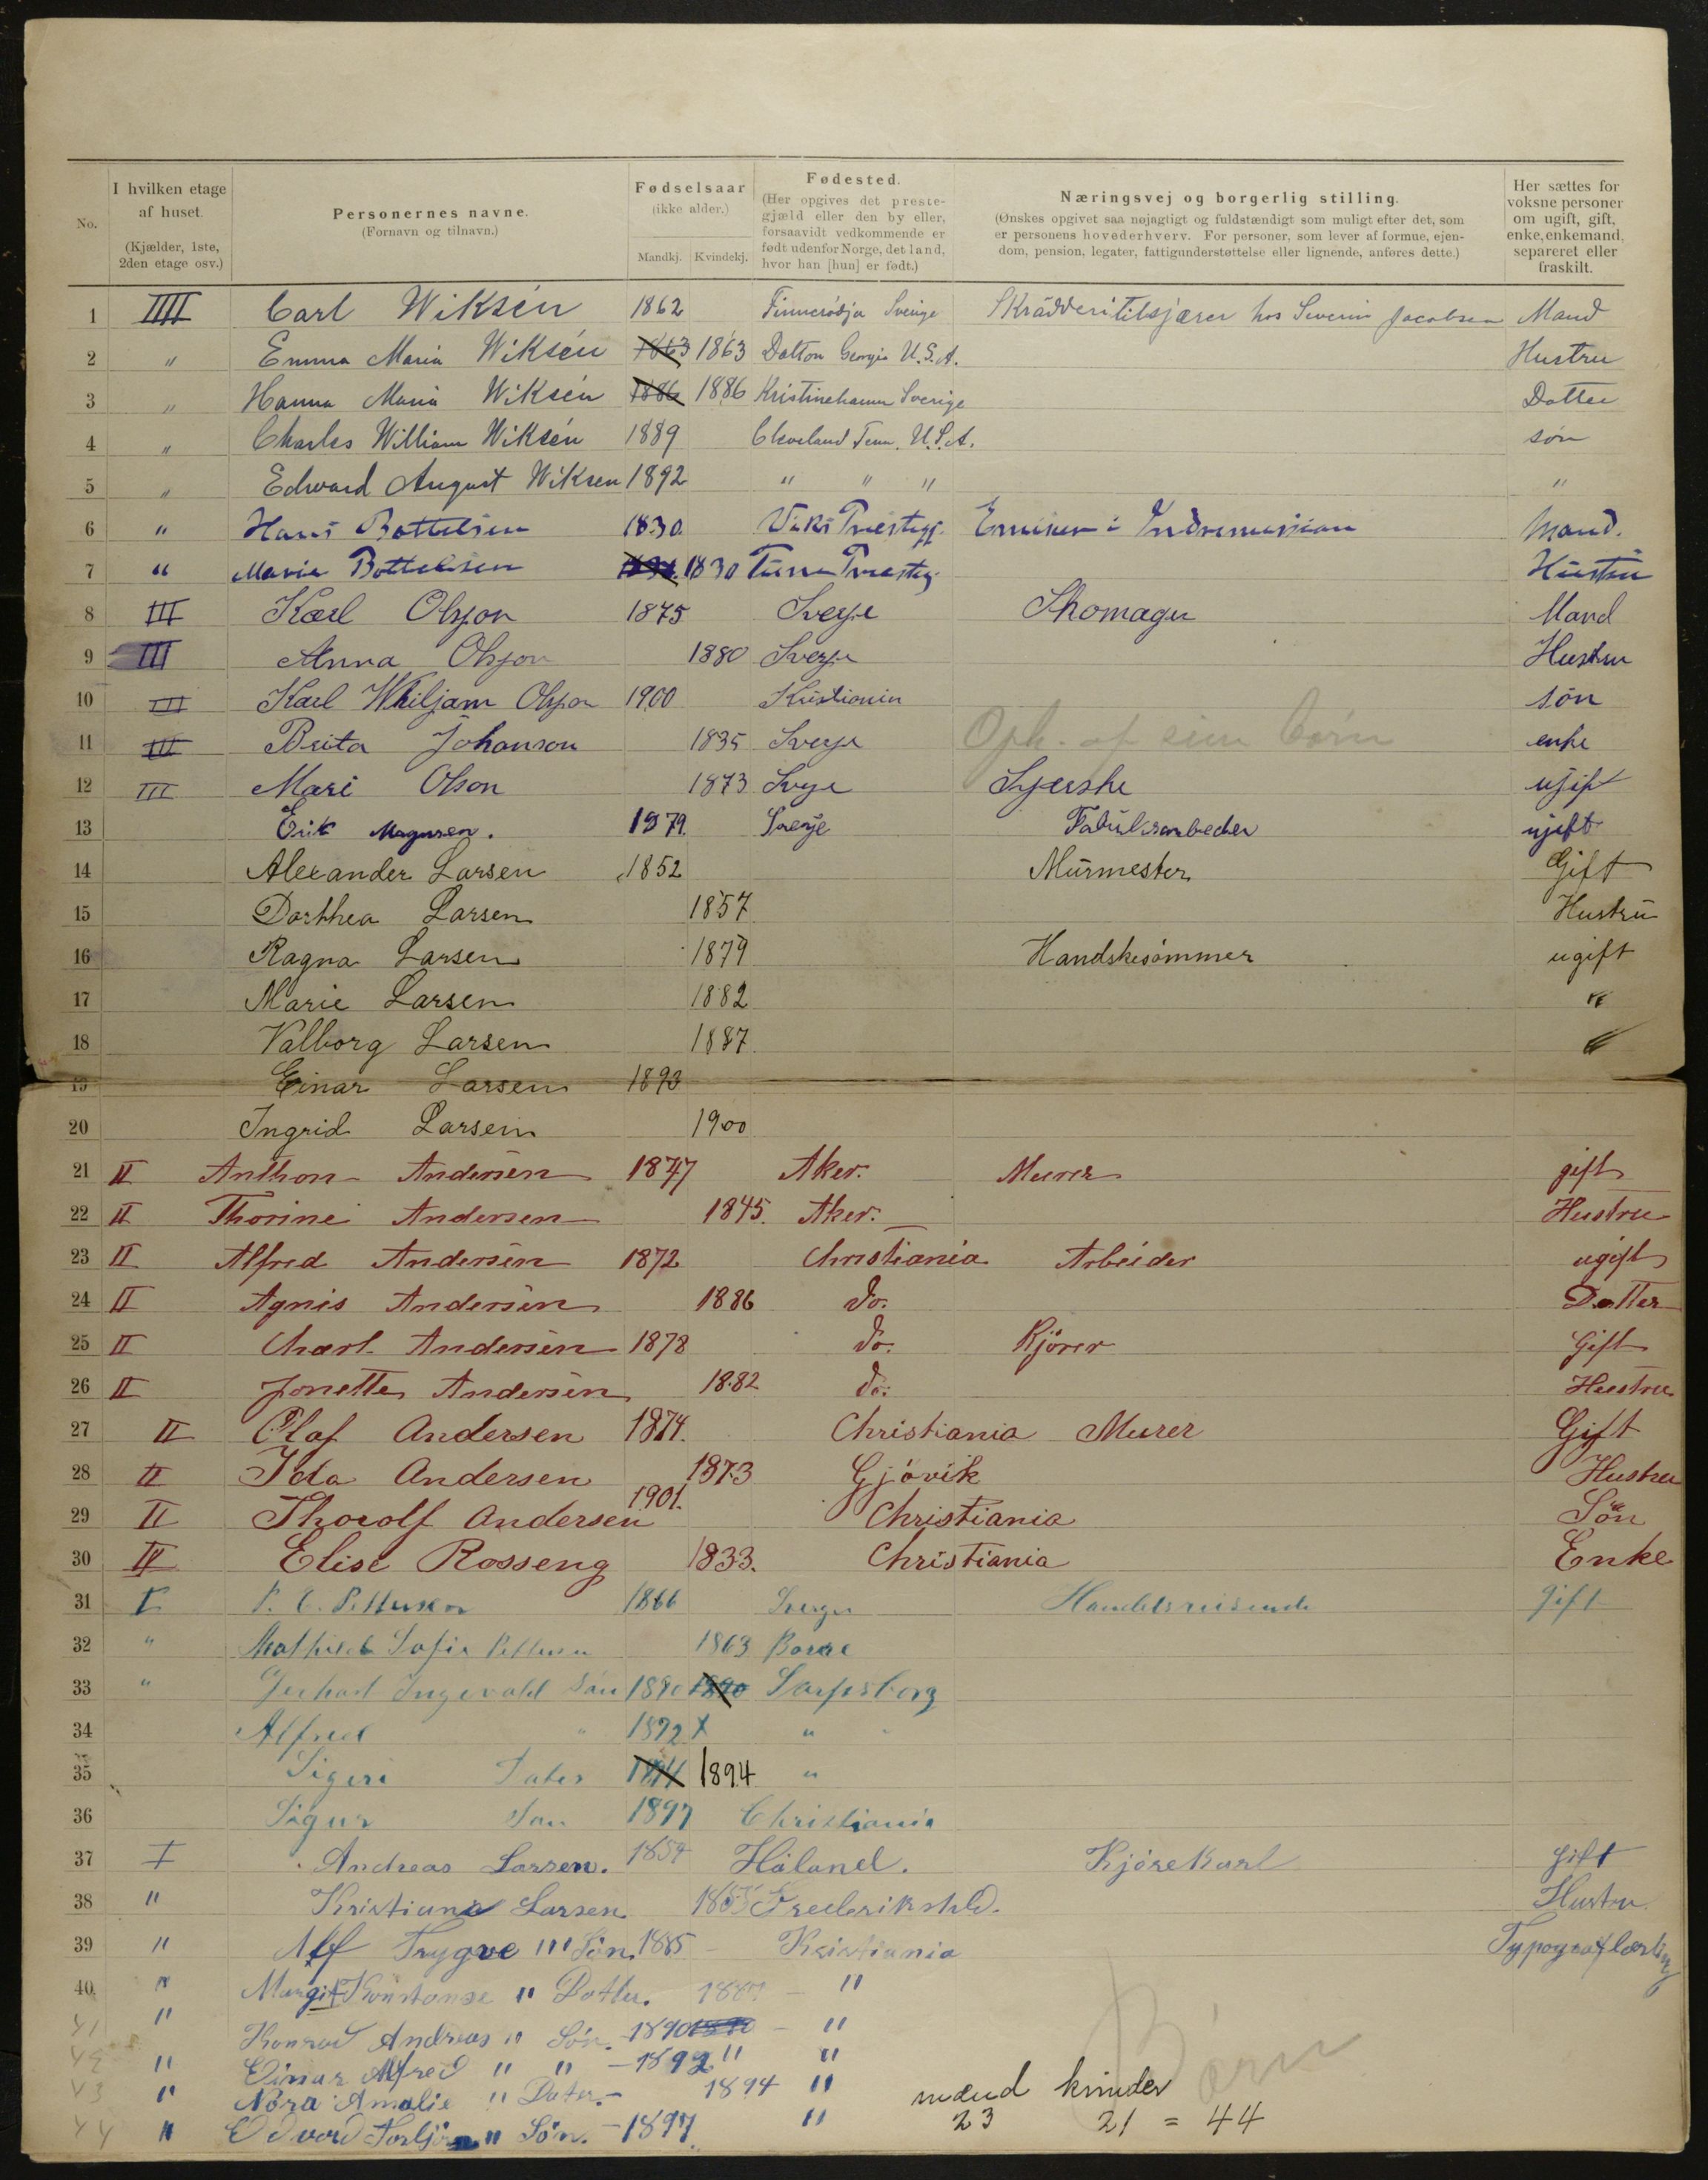 No. | I hvilken etage af huset. (Kjælder, 1ste, 2den etage osv.) | Personernes navne. (Fornavn og tilnavn.) | Fødselsaar (ikke alder.) Mandkj. Kvindekj. | Fødested. (Her opgives det prestegjæld eller den by eller, forsaavidt vedkommende er født udenfor Norge, det land, hvor han [hun] er født.) | Næringsvej og borgerlig stilling. (Ønskes opgivet saa nøjagtigt og fuldstændigt som muligt efter det, som er personens hovederhverv. For personer, som lever af formue, ejendom, pension, legater, fattigunderstøttelse eller lignende, anføres dette.) | Her sættes for voksne personer om ugift, gift, enke, enkemand, separeret eller fraskilt.
1 IIII Carl Wiksén 1862 Finnerödja Sverige Skrädderitilsjærer hos Severin Jacobsen Mand
2 " Emma Maria Wiksén 1863 1863 Dalton Georgia U.S.A. Hustru
3 " Hanna Maria Wiksén 1886 1886 Kristinehamn Sverige Datter
4 " Charles William Wiksén 1889 Cleveland Tenn. U.S.A. sön
5 " Edward August Wiksen 1892 " " " "
6 " Hans Bottelsen 1830. Præstegj. i Indremission Mand.
7 " Marie Bottelsen 1830 Tune Præsteg. Hustru
8 III Karl Olsson 1875 Sverje Skomager Mand
9 III Anna Olsson 1880 Sverje Hustru
10 III Karl Whiljam Olsson 1900 Kristiania sön
11 III Brita Johanson 1835 Sverje Oph. af sine börn enke
12 III Mari Olson 1873 Sverje Syerske ugift
13 Erik Magnusen. 1879. Sverje Fabrikarbeder ugift
14 Alexander Larsen 1852 Murmester Gift
15 Dorthea Larsen 1857 Hustru
16 Ragna Larsen 1879 Handskesömmer ugift
17 Marie Larsen 1882 "
18 Valborg Larsen 1887 "
19 Einar Larsen 1893
20 Ingrid Larsen 1900
21 II Anthon Andersen 1847 Aker. Murer gift
22 II Thorine Andersen 1845. Aker.
Hustru
23 II Alfred Andersen 1872 Christiania Arbeider ugift
24 II Agnis Andersen 1886 do. Datter
25 II Charl Andersen 1878 do. Kjörer Gift
26 II Jonette Andersen 1882 do. Hustru
27 II Olaf Andersen 1874. Christiania Murer Gift
28 II Ida Andersen 1873 Gjövik Hustru
29 II Thorolf Andersen 1901. Christiania Sön
30 II Elise Rosseng 1833. Christiania Enke
31 I P. E. Pettersen 1866 Sverge Handelsreisende gift
32 " Mathilde Sofie Pettersen 1863 Borre
33 " Gerhard Ingevald Sön 1890 1890 Sarpsborg
34 Alfred " 1892 " "
35 Sigeri Dater 1894 1894 "
36 Sigur Sön 1897 Christiania
37 I Andreas Larsen. 1854 Høland. Kjörekarl gift
38 " Kristiane Larsen Frederikshld. Hustru
39 " Alf Trygve " Sön. 1885 Kristiania Typograflærling
40 " Margit Konstanse " Datter. 1887 "
41 " Konrad Andreas " Sön. 1890 1890 "
42 " Einar Alfred " " 1892 " "
43 " Nora Amalie " Dater. 1894 "
44 " Edvard Torbjörn " Sön. 1897 "
Börn
mænd kvinder
23 21 = 44